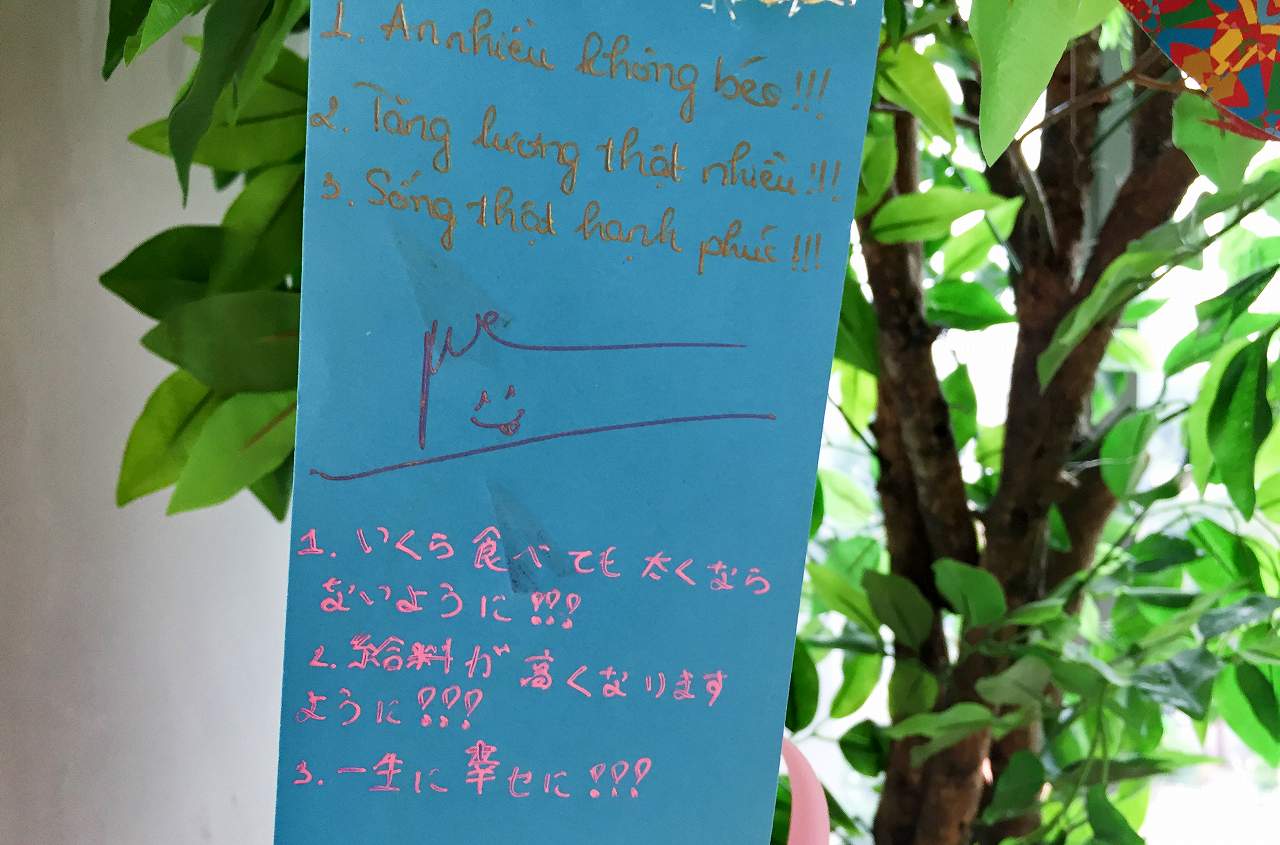 1. Ăn nhiều không béo!!!
2. Tăng lương thật nhiều!!!
3. Sống thật hạnh phúc!!!
1. いくら食べても太くなら
ないように!!!
2. 給料が高くなります
ように!!!
3. 一生に幸せに!!!